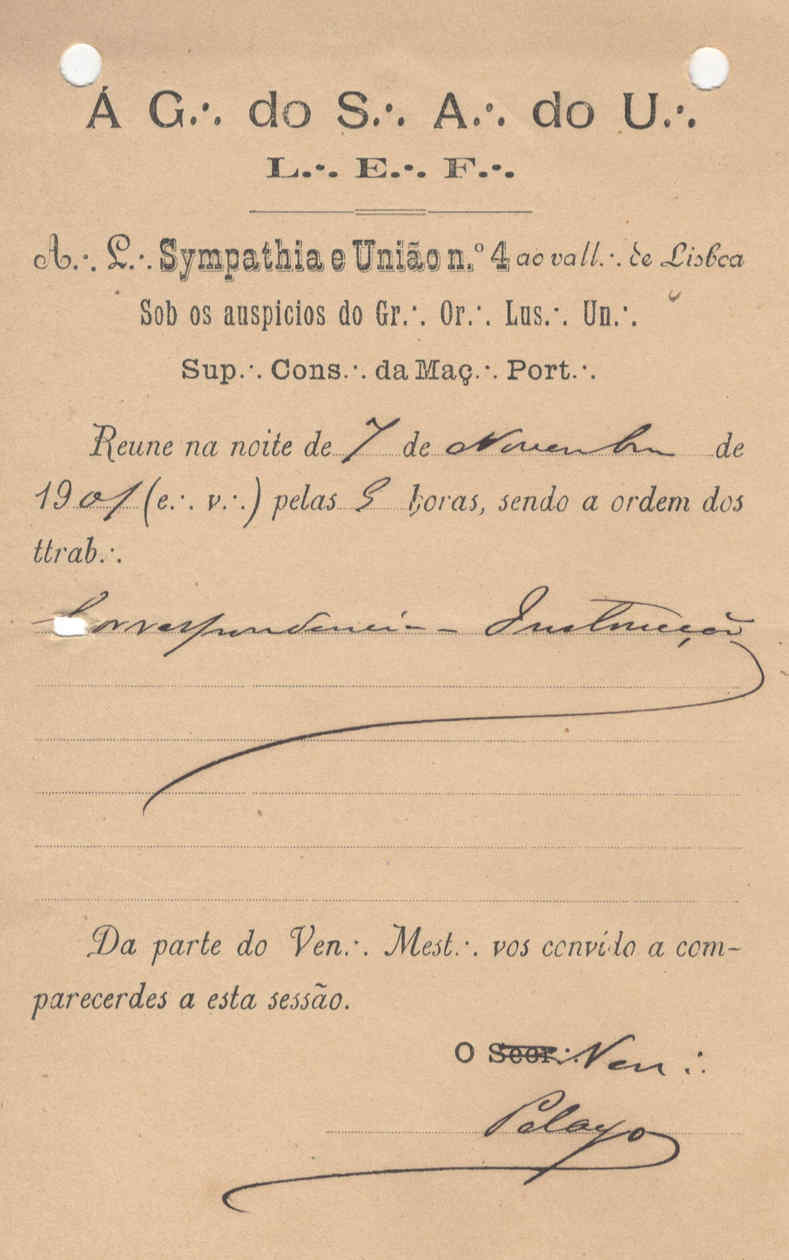 Á G.·. do S.·. A.·. do U.·.
L.·. E.·. F.·.
A.·. L.·. Sympathia e União n.º 4 ao vall.·. de Lisboa
Sob os auspicios do Gr.·. Or.·. Lus.·. Un.·.
Sup.·. Cons.·. da Maç.·. Port.·.
Reune na noite de 7 de Novembro de
1901 (e.·. v.·.) pelas 9 horas, sendo a ordem dos
ttrab.·.
Correspondencia - Instrucção
Da parte do Ven.·. Mest.·. vos convido a com-
parecerdes a esta sessão.
O Secr.·. Ven.·.
Pelayo